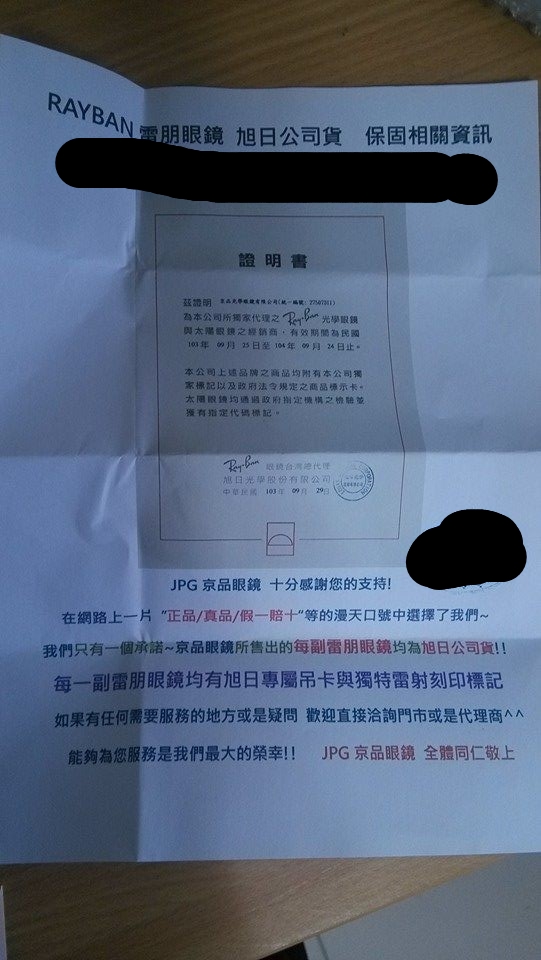 RAYBAN 雷朋眼鏡 旭日公司貨 保固相關資訊
證明書
茲證明 京品光學眼鏡有限公司(統一編號: 27507311)
為本公司所獨家代理之 Ray-Ban 光學眼鏡
與太陽眼鏡之經銷商，有效期間為民國
103 年 09 月 25 日至 104 年 09 月 24 日止。
本公司上述品牌之商品均附有本公司獨
家標記以及政府法令規定之商品標示卡。
太陽眼鏡均通過政府指定機構之檢驗並
獲有指定代碼標記。
Ray-Ban 眼鏡台灣總代理
旭日光學股份有限公司
中華民國 103 年 09 月 29 日
JPG 京品眼鏡 十分感謝您的支持!
在網路上一片 "正品/真品/假一賠十"等的漫天口號中選擇了我們~
我們只有一個承諾~京品眼鏡所售出的每副雷朋眼鏡均為旭日公司貨!!
每一副雷朋眼鏡均有旭日專屬吊卡與獨特雷射刻印標記
如果有任何需要服務的地方或是疑問 歡迎直接洽詢門市或是代理商^^
能夠為您服務是我們最大的榮幸!! JPG 京品眼鏡 全體同仁敬上